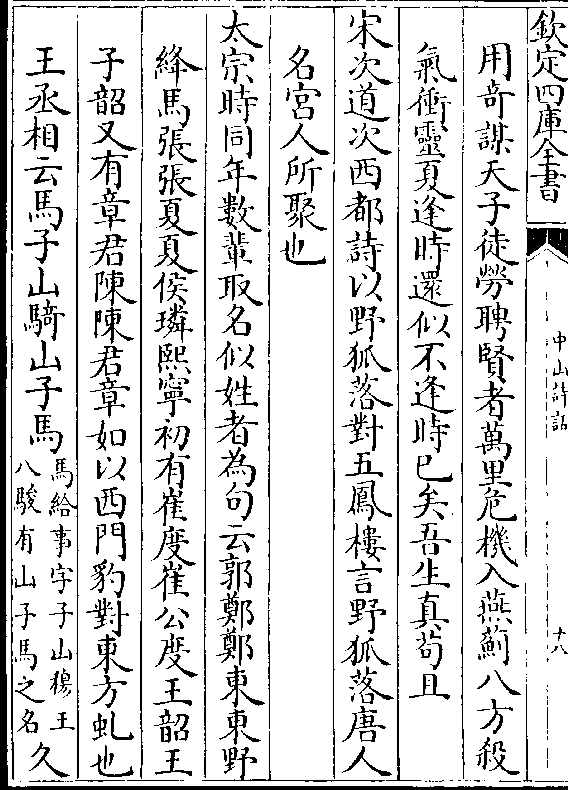 欽定四庫全書
中山詩話
十八
用奇謀天子徒勞聘賢者萬里危機入燕薊八方殺
氣衝靈夏逢時還似不逢時已矣吾生真苟且
宋次道次西都詩以野狐落對五鳳樓言野狐落唐人
名宮人所聚也
太宗時同年數輩取名似姓者為句云郭鄭鄭東東野
絳馬張張夏夏侯璘熙寧初有崔度崔公度王韶王
子韶又有章君陳陳君章如以西門豹對東方虬也
王丞相云馬子山騎山子馬馬給事字子山穆王八駿有山子馬之名久